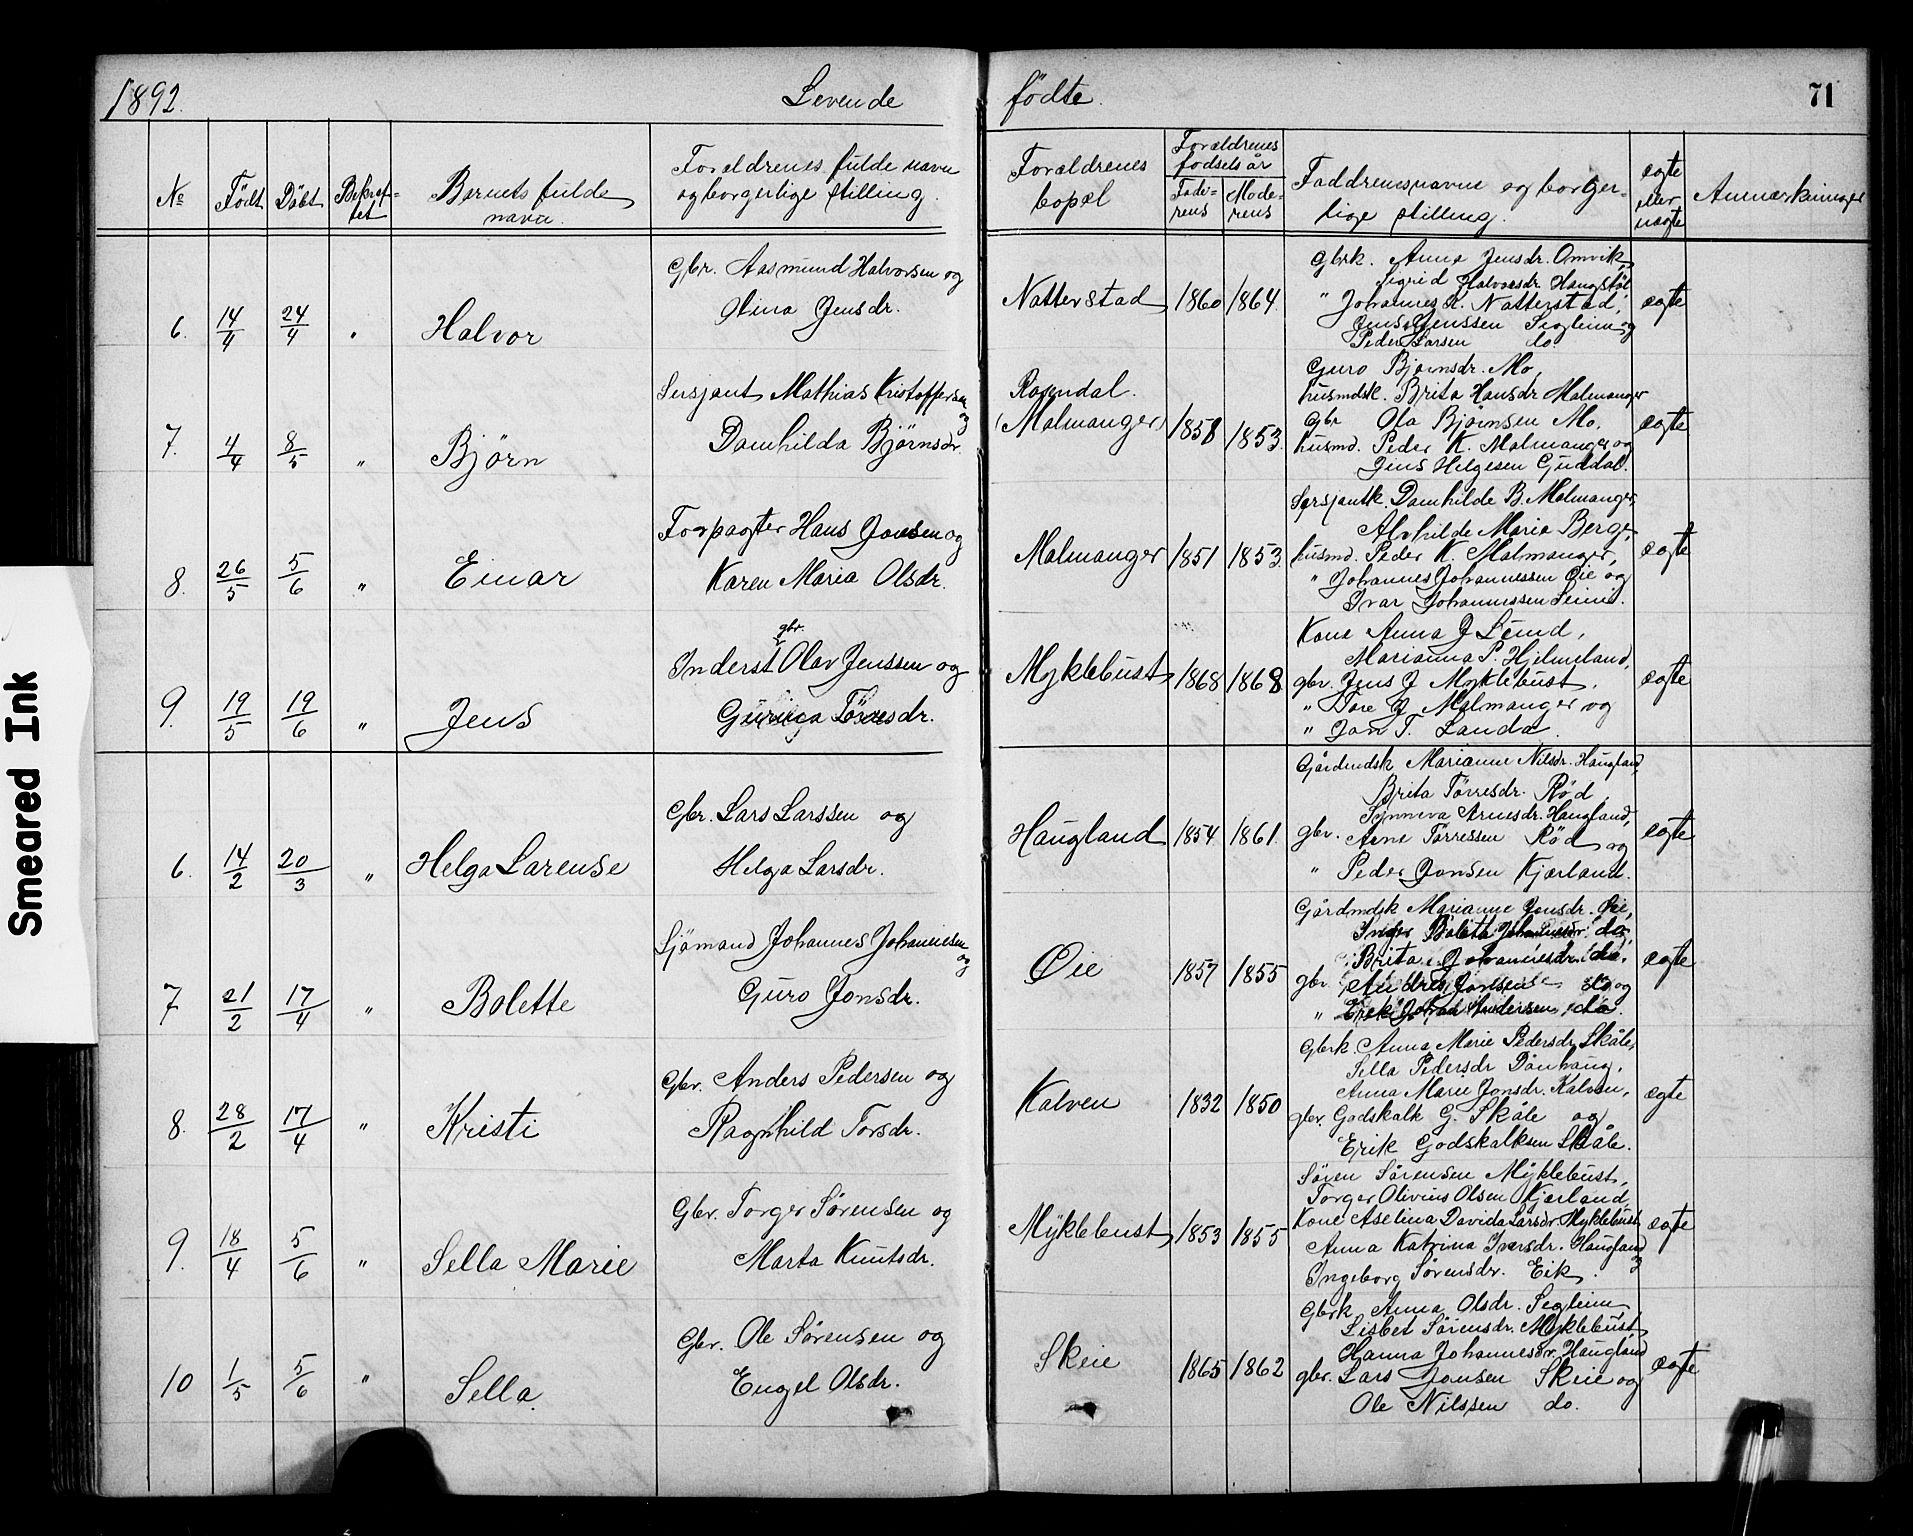 1892.
Levende
fødte.
71
№
Födt
Döbt
Bekræf-
tet
Barnets fulde
navn.
Forældrenes fulde navn
og borgerlige stilling.
Forældrenes
bopæl
Forældrenes
fødsels år
Fade-
rens
Mode-
rens
Faddrenes navne og borger-
lige stilling.
ægte
eller
uægte
Anmærkninger
6. 14/4 24/4 Halvor
Gbr. Aasmund Halvorsen og
Stina Jensdr.
Natterstad 1860 1864.
Gbrk. Anna Jensdr. Omvik,
Sigrid Halvorsdr. Haugstöl
" Johannes K. Natterstad,
Jens Jenssen Seglem og
Peder Larsen do.
ægte
7. 4/4 8/5 " Björn
Sersjant Mathias Kristoffersen
og
Damhilda Bjørnsdr.
Rosendal.
(Malmanger) 1858 1853.
Guro Bjørnsdr. Mo,
husmdsk. Brita Hansdr Malmanger
Gbr Ola Bjørnsen Mo,
husmd. Peder K. Malmanger og
Jens Helgesen Guddal.
ægte
8. 26/5 5/6 " Einar
Forpagter Hans Jonsen og
Karen Maria Olsdr.
Malmanger 1851 1853.
Sersjantk. Damhilde B. Malmanger,
Alvhilde Maria Berge,
husmd. Peder K. Malmanger,
" Johannes Johannessen Øie og
Ivar Johannessen
ægte
9. 19/5 19/6 " Jens
gbr.
Inderst Olav Jenssen og
Guruga Törresdr.
Myklebust 1868 1868
Kone Anna J Lund,
Marianna P. Hjelmeland,
gbr. Jens J Myklebust,
" Tore J Malmanger og
" Jon T. Landa.
ægte
6. 14/2 20/3 " Helga Larense
Gbr. Lars Larssen og
Helga Larsdr.
Haugland 1854 1861.
Gårdmdsk Marianne Nilsdr. Haugland,
Brita Törresdr. Röd,
Synneva Arnesdr. Haugland,
gbr. Arne Törressen Röd og
" Peder Jonsen Kjærland.
ægte
7 21/2 17/4 " Bolette
Sjömand Johannes Johannesen
og
Guro Jonsdr.
Øie 1857 1855
Gårdmdsk Marianne Jonsdr. Øie,
Inger Bolette Johannesdr. do,
Brita Johannesdr. do,
gbr. Andreas Jonsen do og
" Erik Johan Andersen do.
ægte
8. 28/2 17/4 " Kristi
Gbr. Anders Pedersen og
Ragnhild Torsdr.
Kalven 1832 1850
Gbrk. Anna Marie Pedersdr. Skåle,
Sella Pedersdr Dönhaug,
Anna Marie Jonsdr. Kalven,
gbr. Godskalk G. Skåle og
Erik Godskalksen Skåle.
ægte
9. 18/4 5/6 " Sella Marie
Gbr. Torger Sörensen og
Marta Knutsdr.
Myklebust 1853 1855
Sören Sörensen Myklebust,
Torger Olivius Olsen Kjærland,
Kone Aselina Davida Larsdr. Myklebust
Anna Katrina Iversdr. Haugland
og
Ingeborg Sörensdr. Eik.
ægte
10 1/5 5/6 " Sella.
Gbr. Ole Sörensen og
Engel Olsdr.
Skeie 1865 1862
Gbrk Anna Olsdr. Seglem
Lisbet Sörensdr. Myklebust,
Hanna Johannesdr. Haugland
gbr. Lars Jonsen Skeie og
Ole Nilssen do.
ægte
Smeared Ink